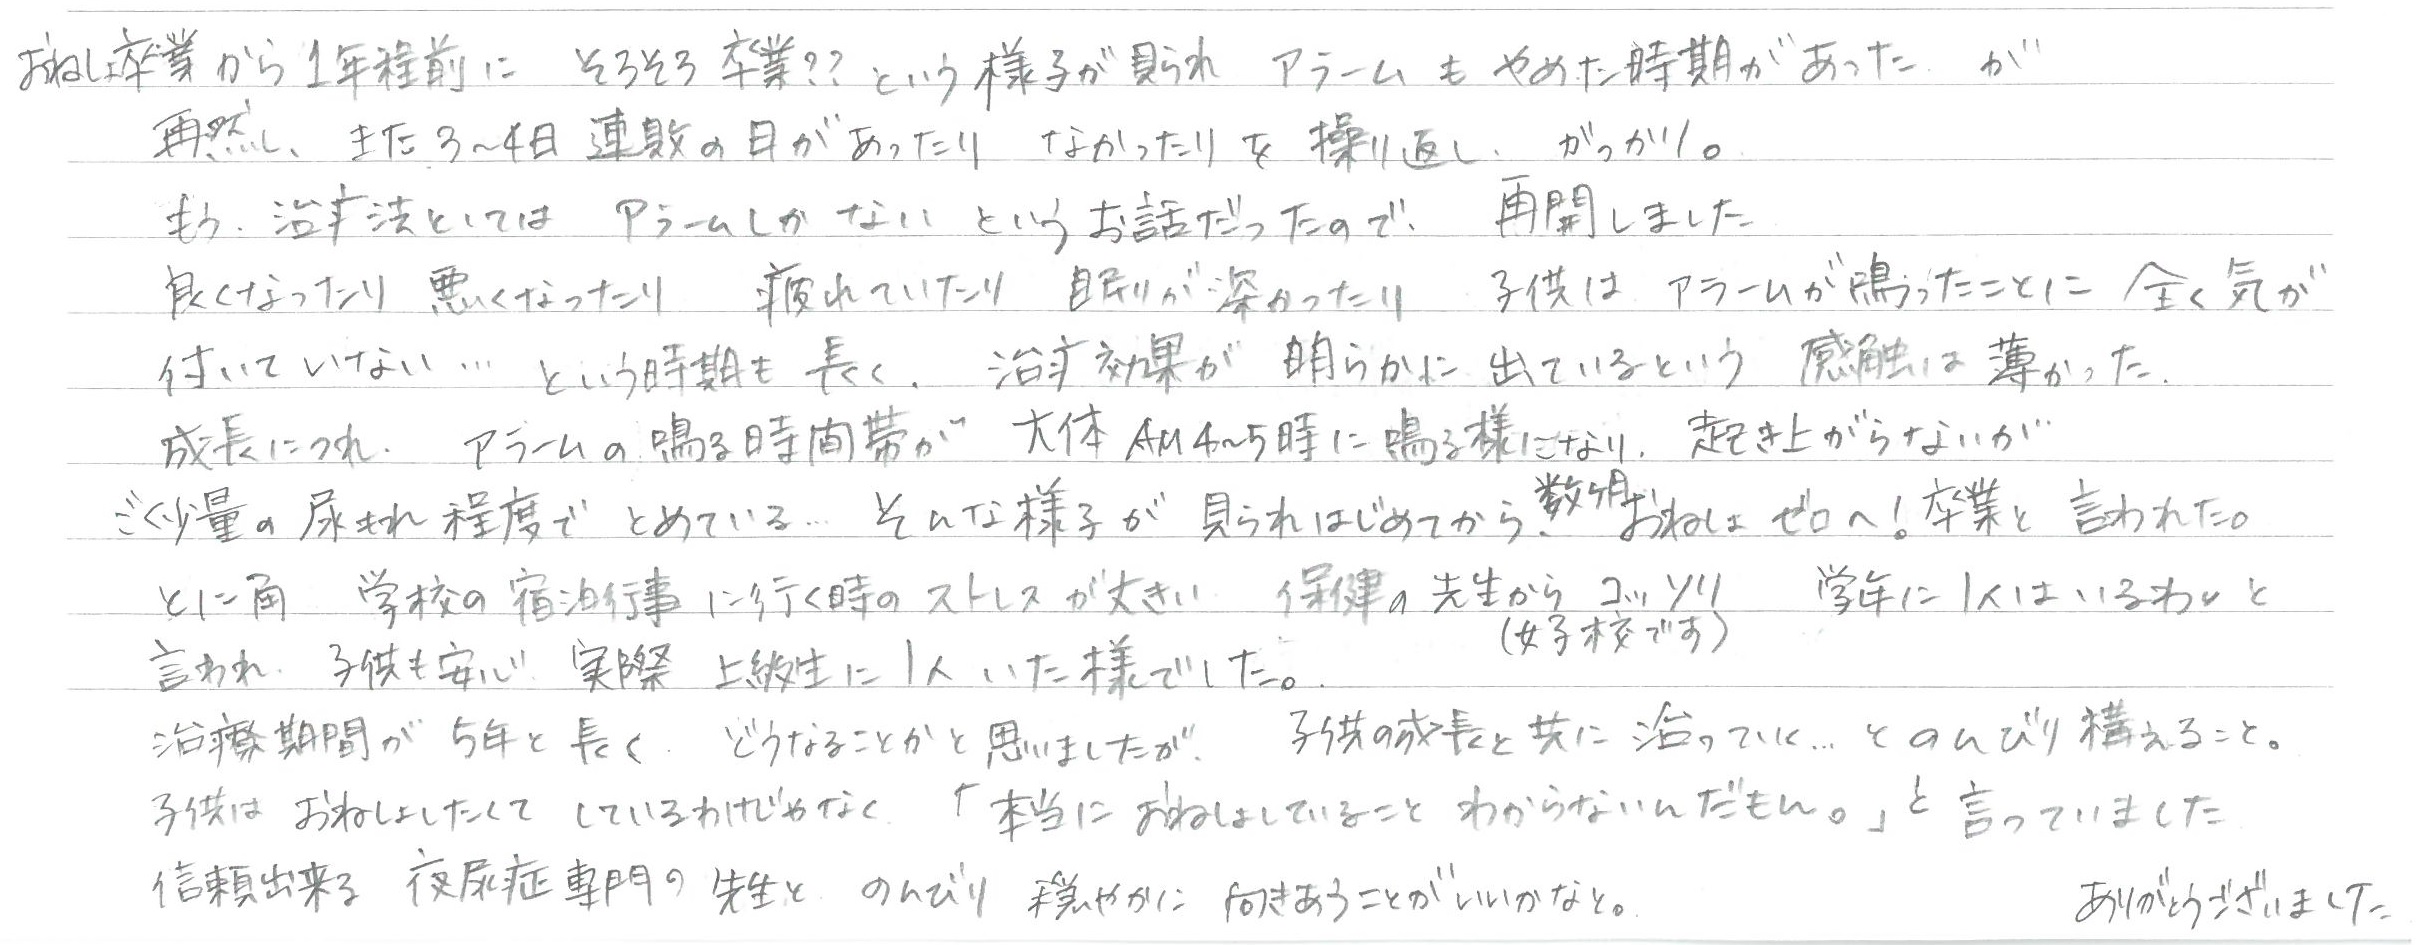 おねしょ卒業から1年程前に そろそろ卒業??という様子が見られ アラームもやめた時期があった が
再然し、また3~4日連敗の日があったり なかったりを繰り返し、がっかり。
もう、治疗法としては アラームしかない というお話だったので、 再開しました
良くなったり悪くなったり 疲れていたり 眠りが深かったり 子供は アラームが鳴ったことに 全く気が
付いていない… という時期も長く、 治疗効果が明らかに出ているという 感触は薄かった。
成長につれ、 アラームの鳴る時間帯が 大体AM4~5時に鳴る様になり、起き上がらないが
ごく少量の尿もれ程度で とめている… そんな様子が 見られはじめてから、数ヶ月おねしょゼロへ!卒業と言われた。
とに角 学校の宿泊行事に行く時のストレスが大きい 保健の先生からコッソリ 学年に1人はいるわよと
(女子校です)
言われ、子供も安心 実際 上級生に1人いた様でした。
治療期間が5年と長く、どうなることかと思いましたが、 子供の成長と共に治っていく…とのんびり構えること。
子供は おねしょしたくてしているわけじゃなく、「本当におねしょしていること わからないんだもん。」と言っていました
信頼出来る 夜尿症専門の先生と のんびり 穏やかに 向きあうことがいいかなと。
ありがとうございました